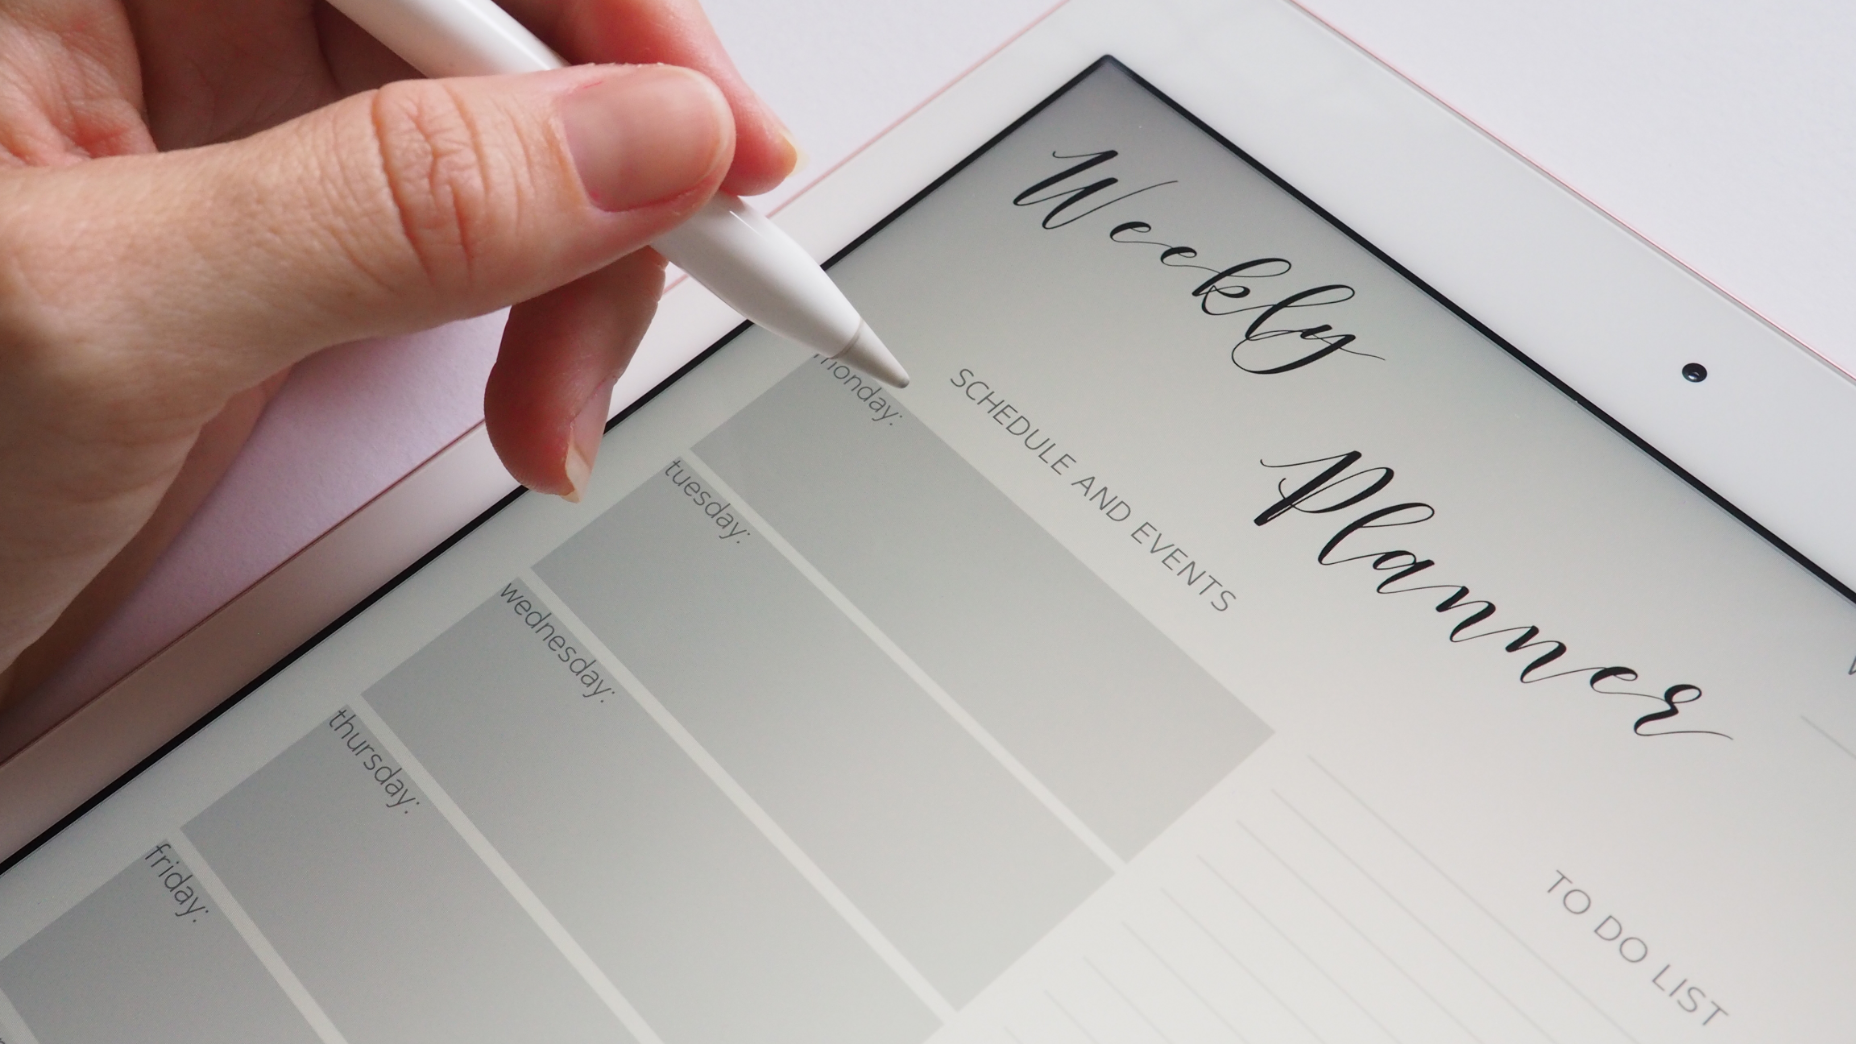 Weekly
Planner
SCHEDULE AND EVENTS
monday:
tuesday:
wednesday:
thursday:
friday:
TO DO LIST